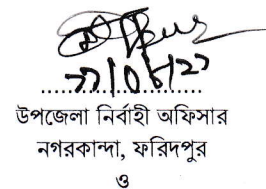 উপজেলা নির্বাহী অফিসার
নগরকান্দা, ফরিদপুর
ও